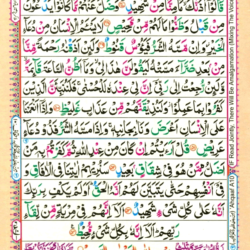 قَالُوٓا۟ ءَاذَنَّـٰكَ مَا مِنَّا مِن شَهِيدٍ وَضَلَّ عَنْهُم مَّا كَانُوا۟ يَدْعُونَ
مِن قَبْلُ وَظَنُّوا۟ مَا لَهُم مِّن مَّحِيصٍ لَّا يَسْـَٔمُ ٱلْإِنسَـٰنُ مِن دُعَآءِ
ٱلْخَيْرِ وَإِن مَّسَّهُ ٱلشَّرُّ فَيَـُٔوسٌ قَنُوطٌ وَلَئِنْ أَذَقْنَـٰهُ رَحْمَةً مِّنَّا
مِنۢ بَعْدِ ضَرَّآءَ مَسَّتْهُ لَيَقُولَنَّ هَـٰذَا لِى وَمَآ أَظُنُّ ٱلسَّاعَةَ قَآئِمَةً
وَلَئِن رُّجِعْتُ إِلَىٰ رَبِّىٓ إِنَّ لِى عِندَهُۥ لَلْحُسْنَىٰ فَلَنُنَبِّئَنَّ ٱلَّذِينَ
كَفَرُوا۟ بِمَا عَمِلُوا۟ وَلَنُذِيقَنَّهُم مِّنْ عَذَابٍ غَلِيظٍ وَإِذَآ أَنْعَمْنَا
عَلَى ٱلْإِنسَـٰنِ أَعْرَضَ وَنَـَٔا بِجَانِبِهِۦ وَإِذَا مَسَّهُ ٱلشَّرُّ فَذُو دُعَآءٍ
عَرِيضٍ قُلْ أَرَءَيْتُمْ إِن كَانَ مِنْ عِندِ ٱللَّهِ ثُمَّ كَفَرْتُم بِهِۦ مَنْ
أَضَلُّ مِمَّنْ هُوَ فِى شِقَاقٍۭ بَعِيدٍ سَنُرِيهِمْ ءَايَـٰتِنَا فِى ٱلْـَٔافَاقِ وَ
فِىٓ أَنفُسِهِمْ حَتَّىٰ يَتَبَيَّنَ لَهُمْ أَنَّهُ ٱلْحَقُّ أَوَلَمْ يَكْفِ بِرَبِّكَ
أَنَّهُۥ عَلَىٰ كُلِّ شَىْءٍ شَهِيدٌ أَلَآ إِنَّهُمْ فِى مِرْيَةٍ مِّن لِّقَآءِ
رَبِّهِمْ أَلَآ إِنَّهُۥ بِكُلِّ شَىْءٍ مُّحِيطٌۢ
Read Jointly, There Will Be Amalgamation (Mixing The Voice